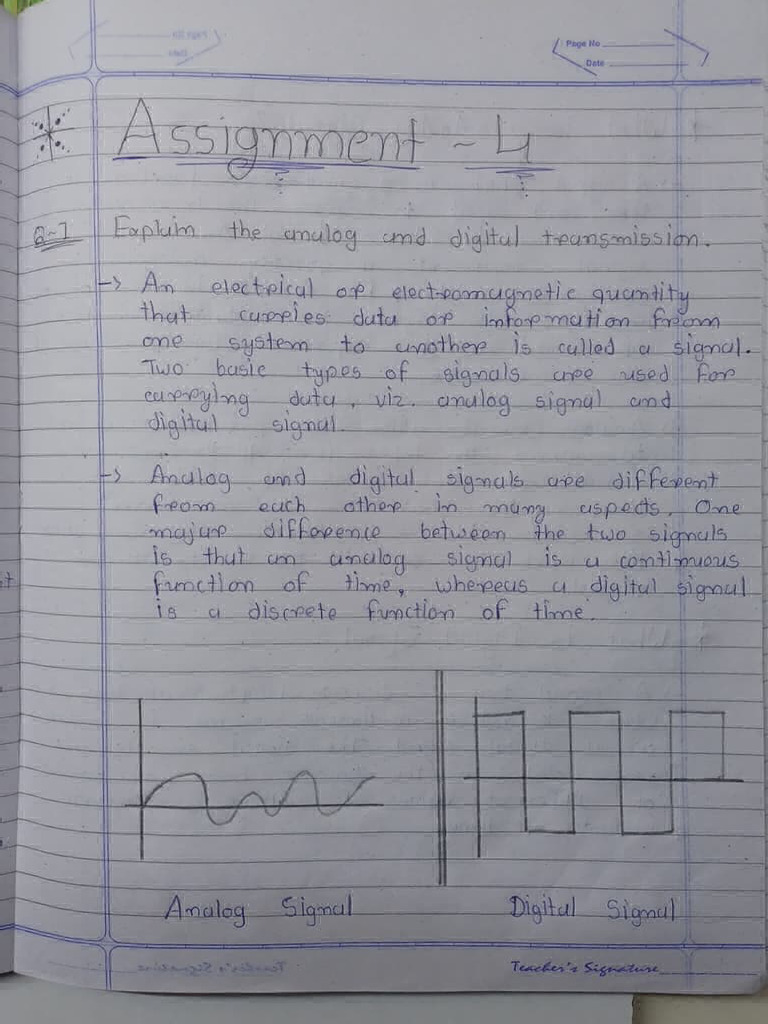 Page No
Date
Assignment - 4
Q-1 Explain the analog and digital transmission.
-> An electrical or electromagnetic quantity
that carries data or information from
one system to another is called a signal.
Two basic types of signals are used for
carrying data, viz. analog signal and
digital signal.
-> Analog and digital signals are different
from each other in many aspects. One
major difference between the two signals
is that an analog signal is a continuous
function of time, whereas a digital signal
is a discrete function of time.
Analog Signal
Digital Signal
Teacher's Signature